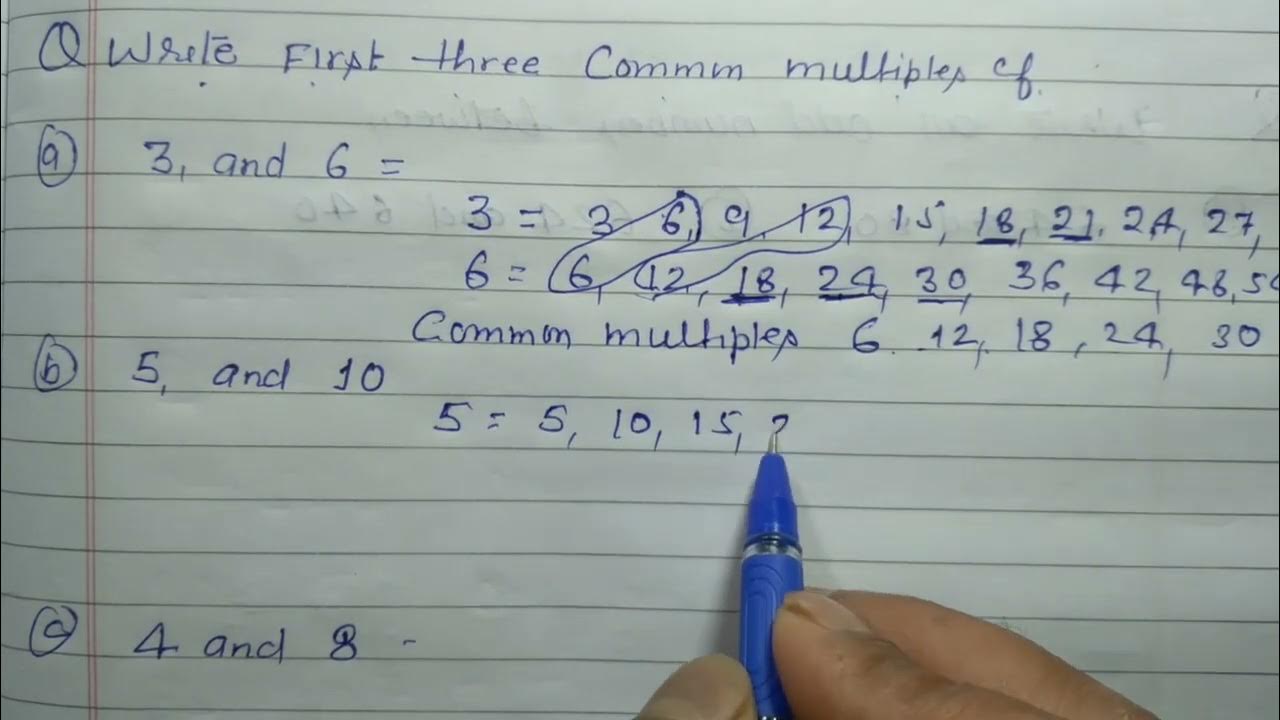 Q Write First three Common multiples of.
(a) 3, and 6 =
3 = 3 6, 9, 12, 15, 18, 21, 24, 27,
6 = 6, 12, 18, 24, 30, 36, 42, 48,
Common multiples 6 12, 18, 24, 30
(b) 5, and 10
5 = 5, 10, 15,
(c) 4 and 8 -